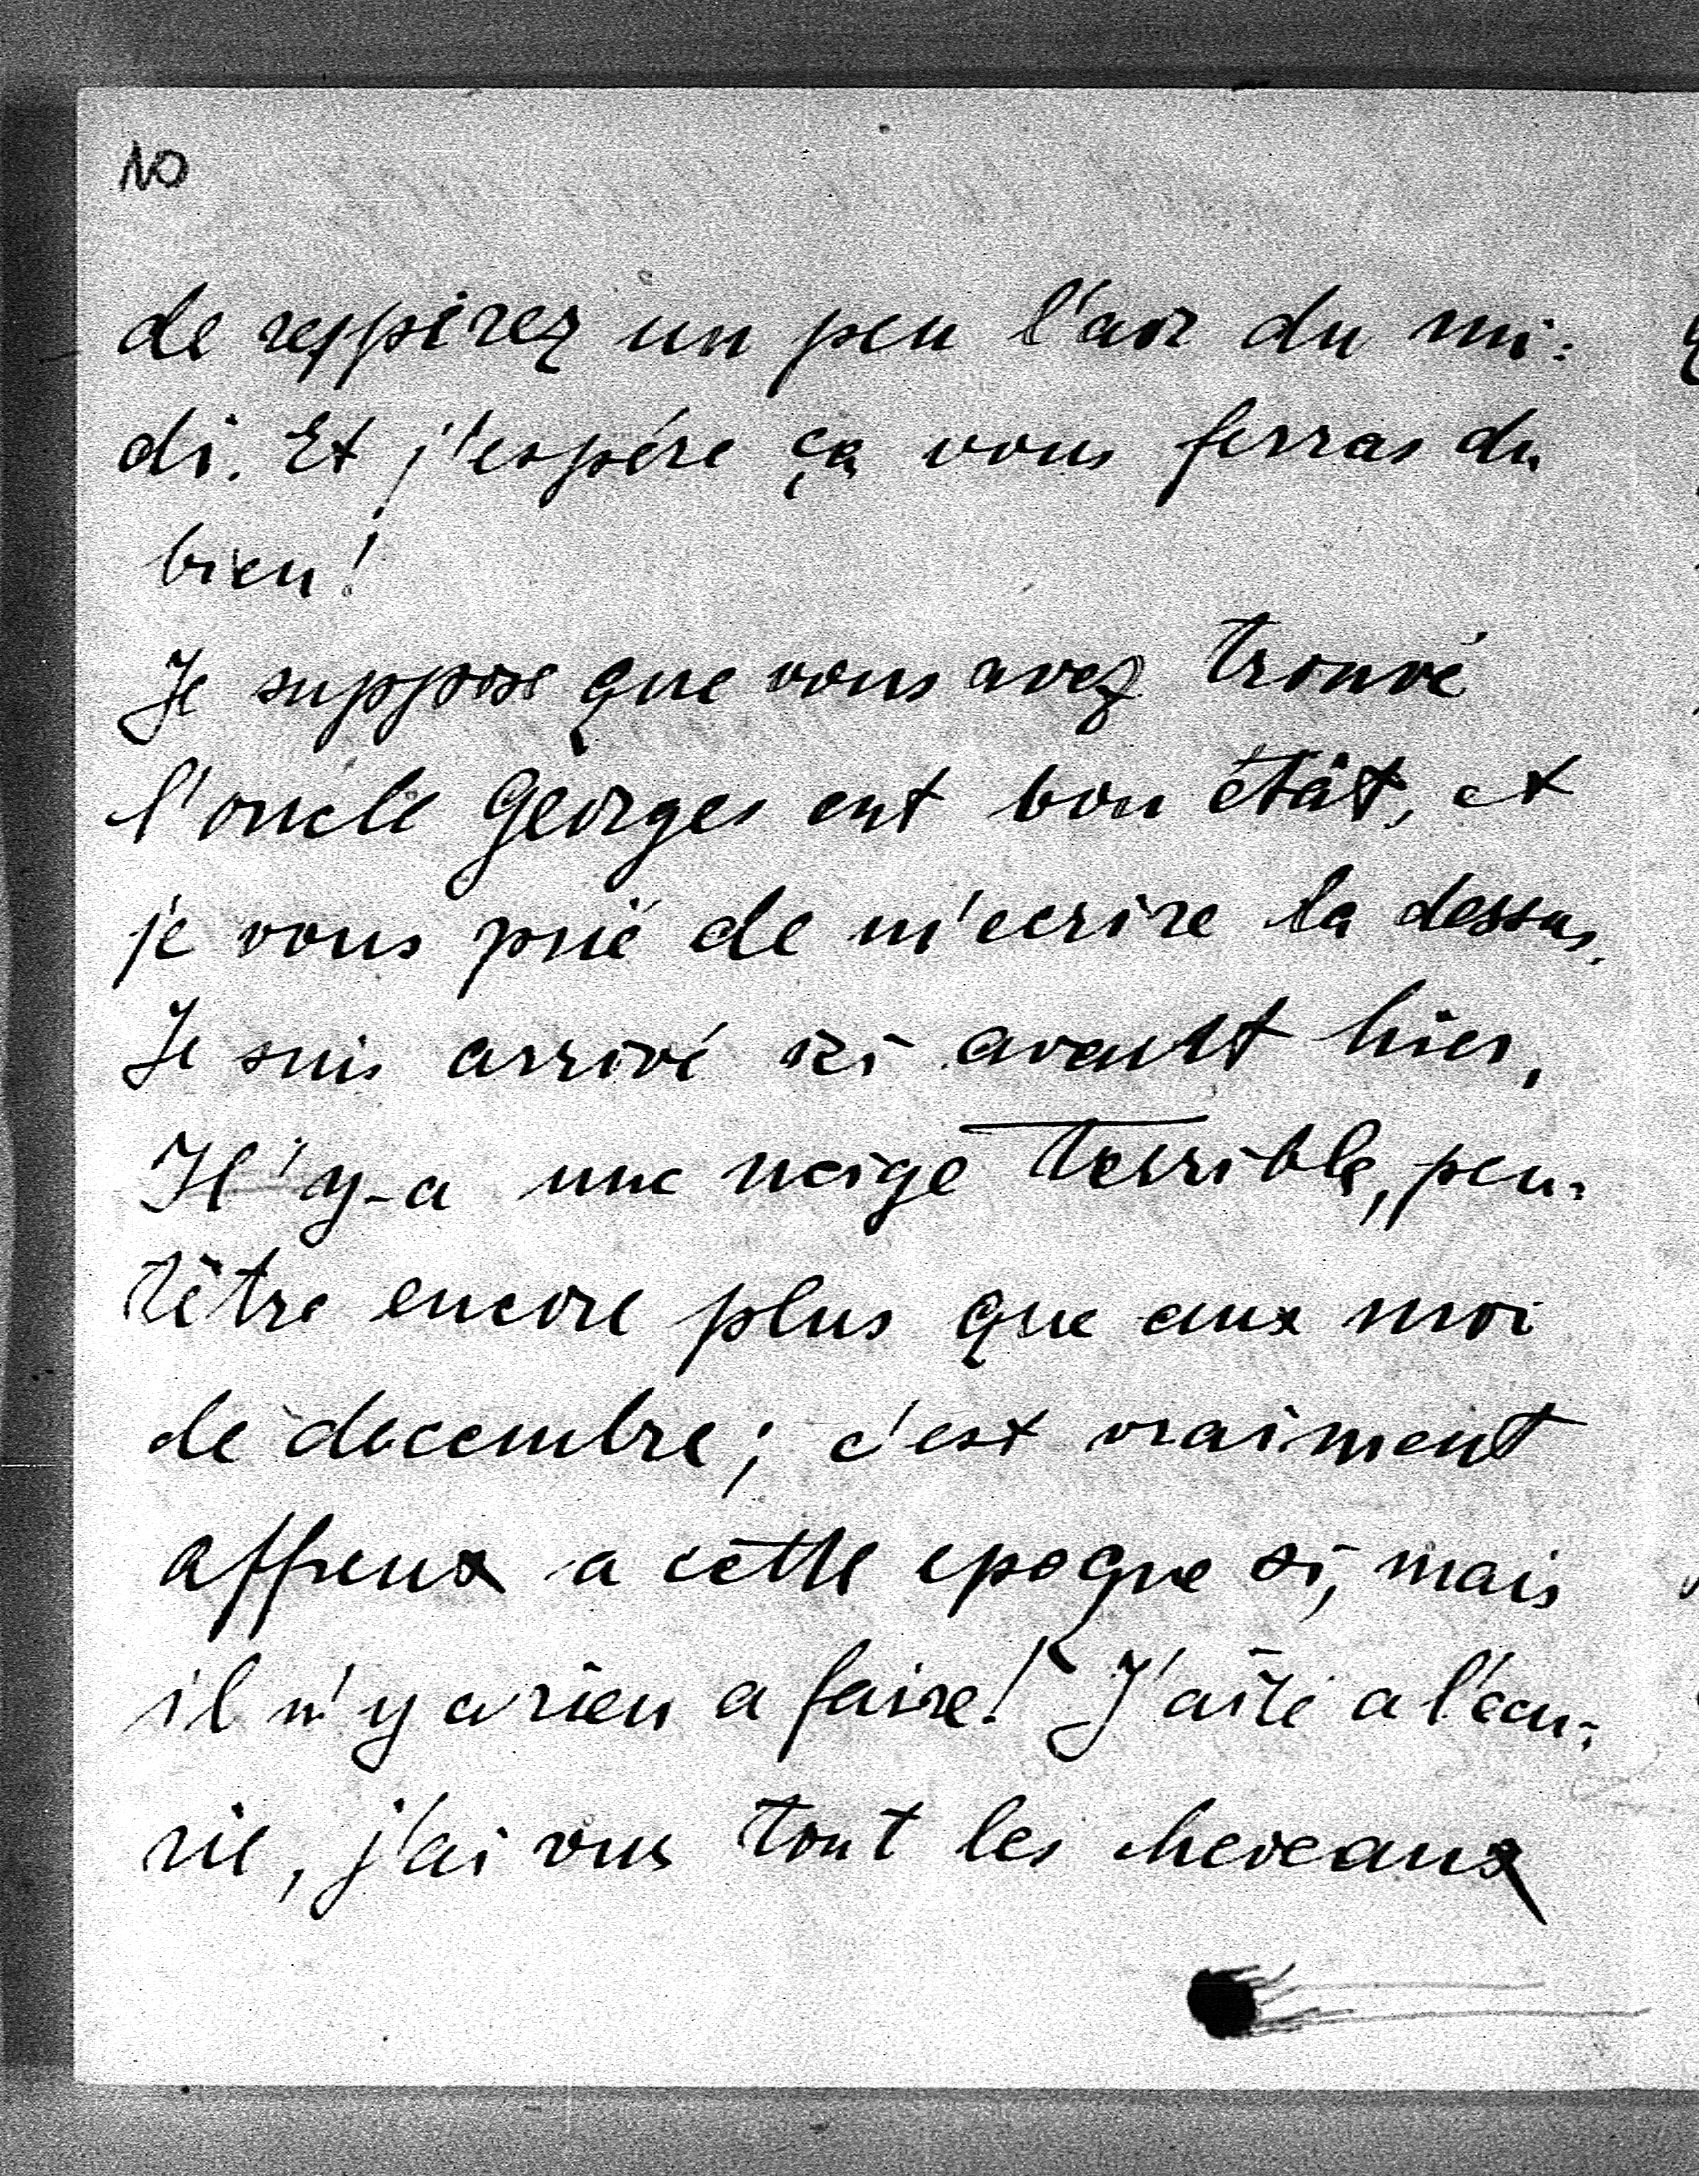 NO
de respirez un peu l'air du mi:
di. Et j'espére ça vous ferras du
bien!
Je suppose que vous avez trouvé
l'oncle Georges ent bon étât, et
je vous prië de m'ecrire la dessus.
Je suis arrivé ici avant hier,
Il'y-a une neige terrible, peu-
têtre encore plus que aux moi
de decembre; c'est vraiment
affreux a cette epoque si, mais
il n'y a rien a faire! J'aité a l'écu-
rie, j'ai vus tout les cheveaux